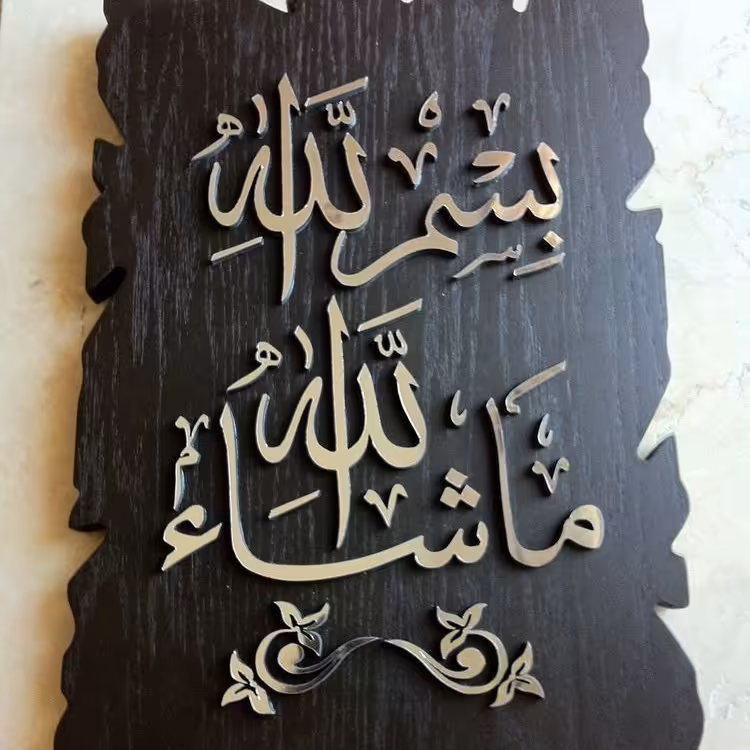 بسم الله
ما شاء الله